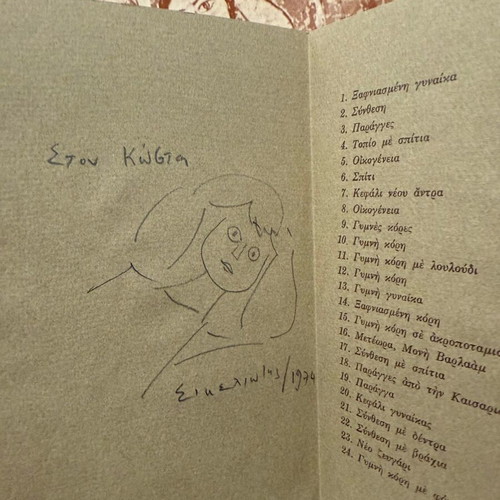 Στον Κώστα
Σικελιώτης/1974
1. Ξαφνιασμένη γυναίκα
2. Σύνθεση
3. Παράγγες
4. Τοπίο μὲ σπίτια
5. Οἰκογένεια
6. Σπίτι
7. Κεφάλι νέου ἄντρα
8. Οἰκογένεια
9. Γυμνὲς κόρες
10. Γυμνὴ κόρη
11. Γυμνὴ κόρη μὲ λουλούδι
12. Γυμνὴ κόρη
13. Γυμνὴ γυναίκα
14. Ξαφνιασμένη κόρη
15. Γυμνὴ κόρη σὲ ἀκροποταμιὰ
16. Μετέωρα, Μονὴ Βαρλαὰμ
17. Σύνθεση μὲ σπίτια
18. Παράγγες ἀπὸ τὴν Καισαρι
19. Παράγγα
20. Κεφάλι γυναίκας
21. Σύνθεση μὲ δέντρα
22. Σύνθεση μὲ βράχια
23. Νέο ζευγάρι
24. Γυμνὴ κόρη μὲ